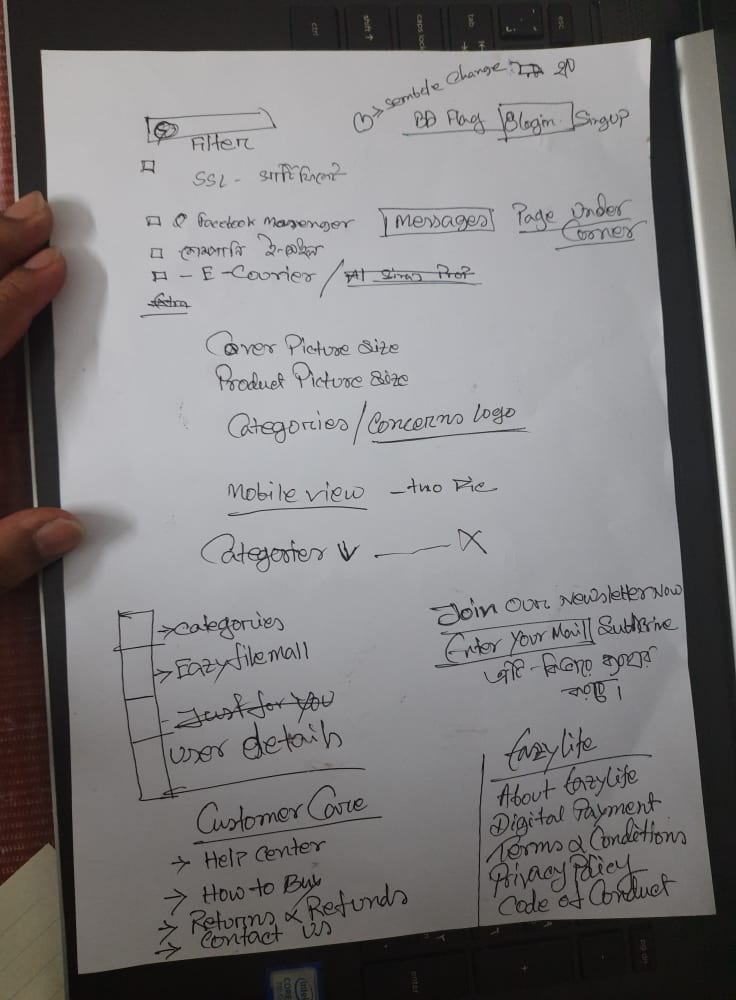 sembole change
BD Flag Login Singup
Filter
SSL - সার্টিফিকেট
Facebook Massenger Messages Page Under Corner
- E-Courier /
Cover Picture Size
Product Picture Size
Categories / Concerns logo
Mobile view - two Pic
Categories ↓ —— X
Join Our Newsletter Now
Enter Your Mail Subscrive
→ Categories
→ Eazylifemall
Just for You
User details
Customer Care
→ Help Center
→ How to Buy
→ Returns & Refunds
→ Contact Us
Eazylife
About Eazylife
Digital Payment
Terms & Conditions
Privacy Policy
Code of Conduct